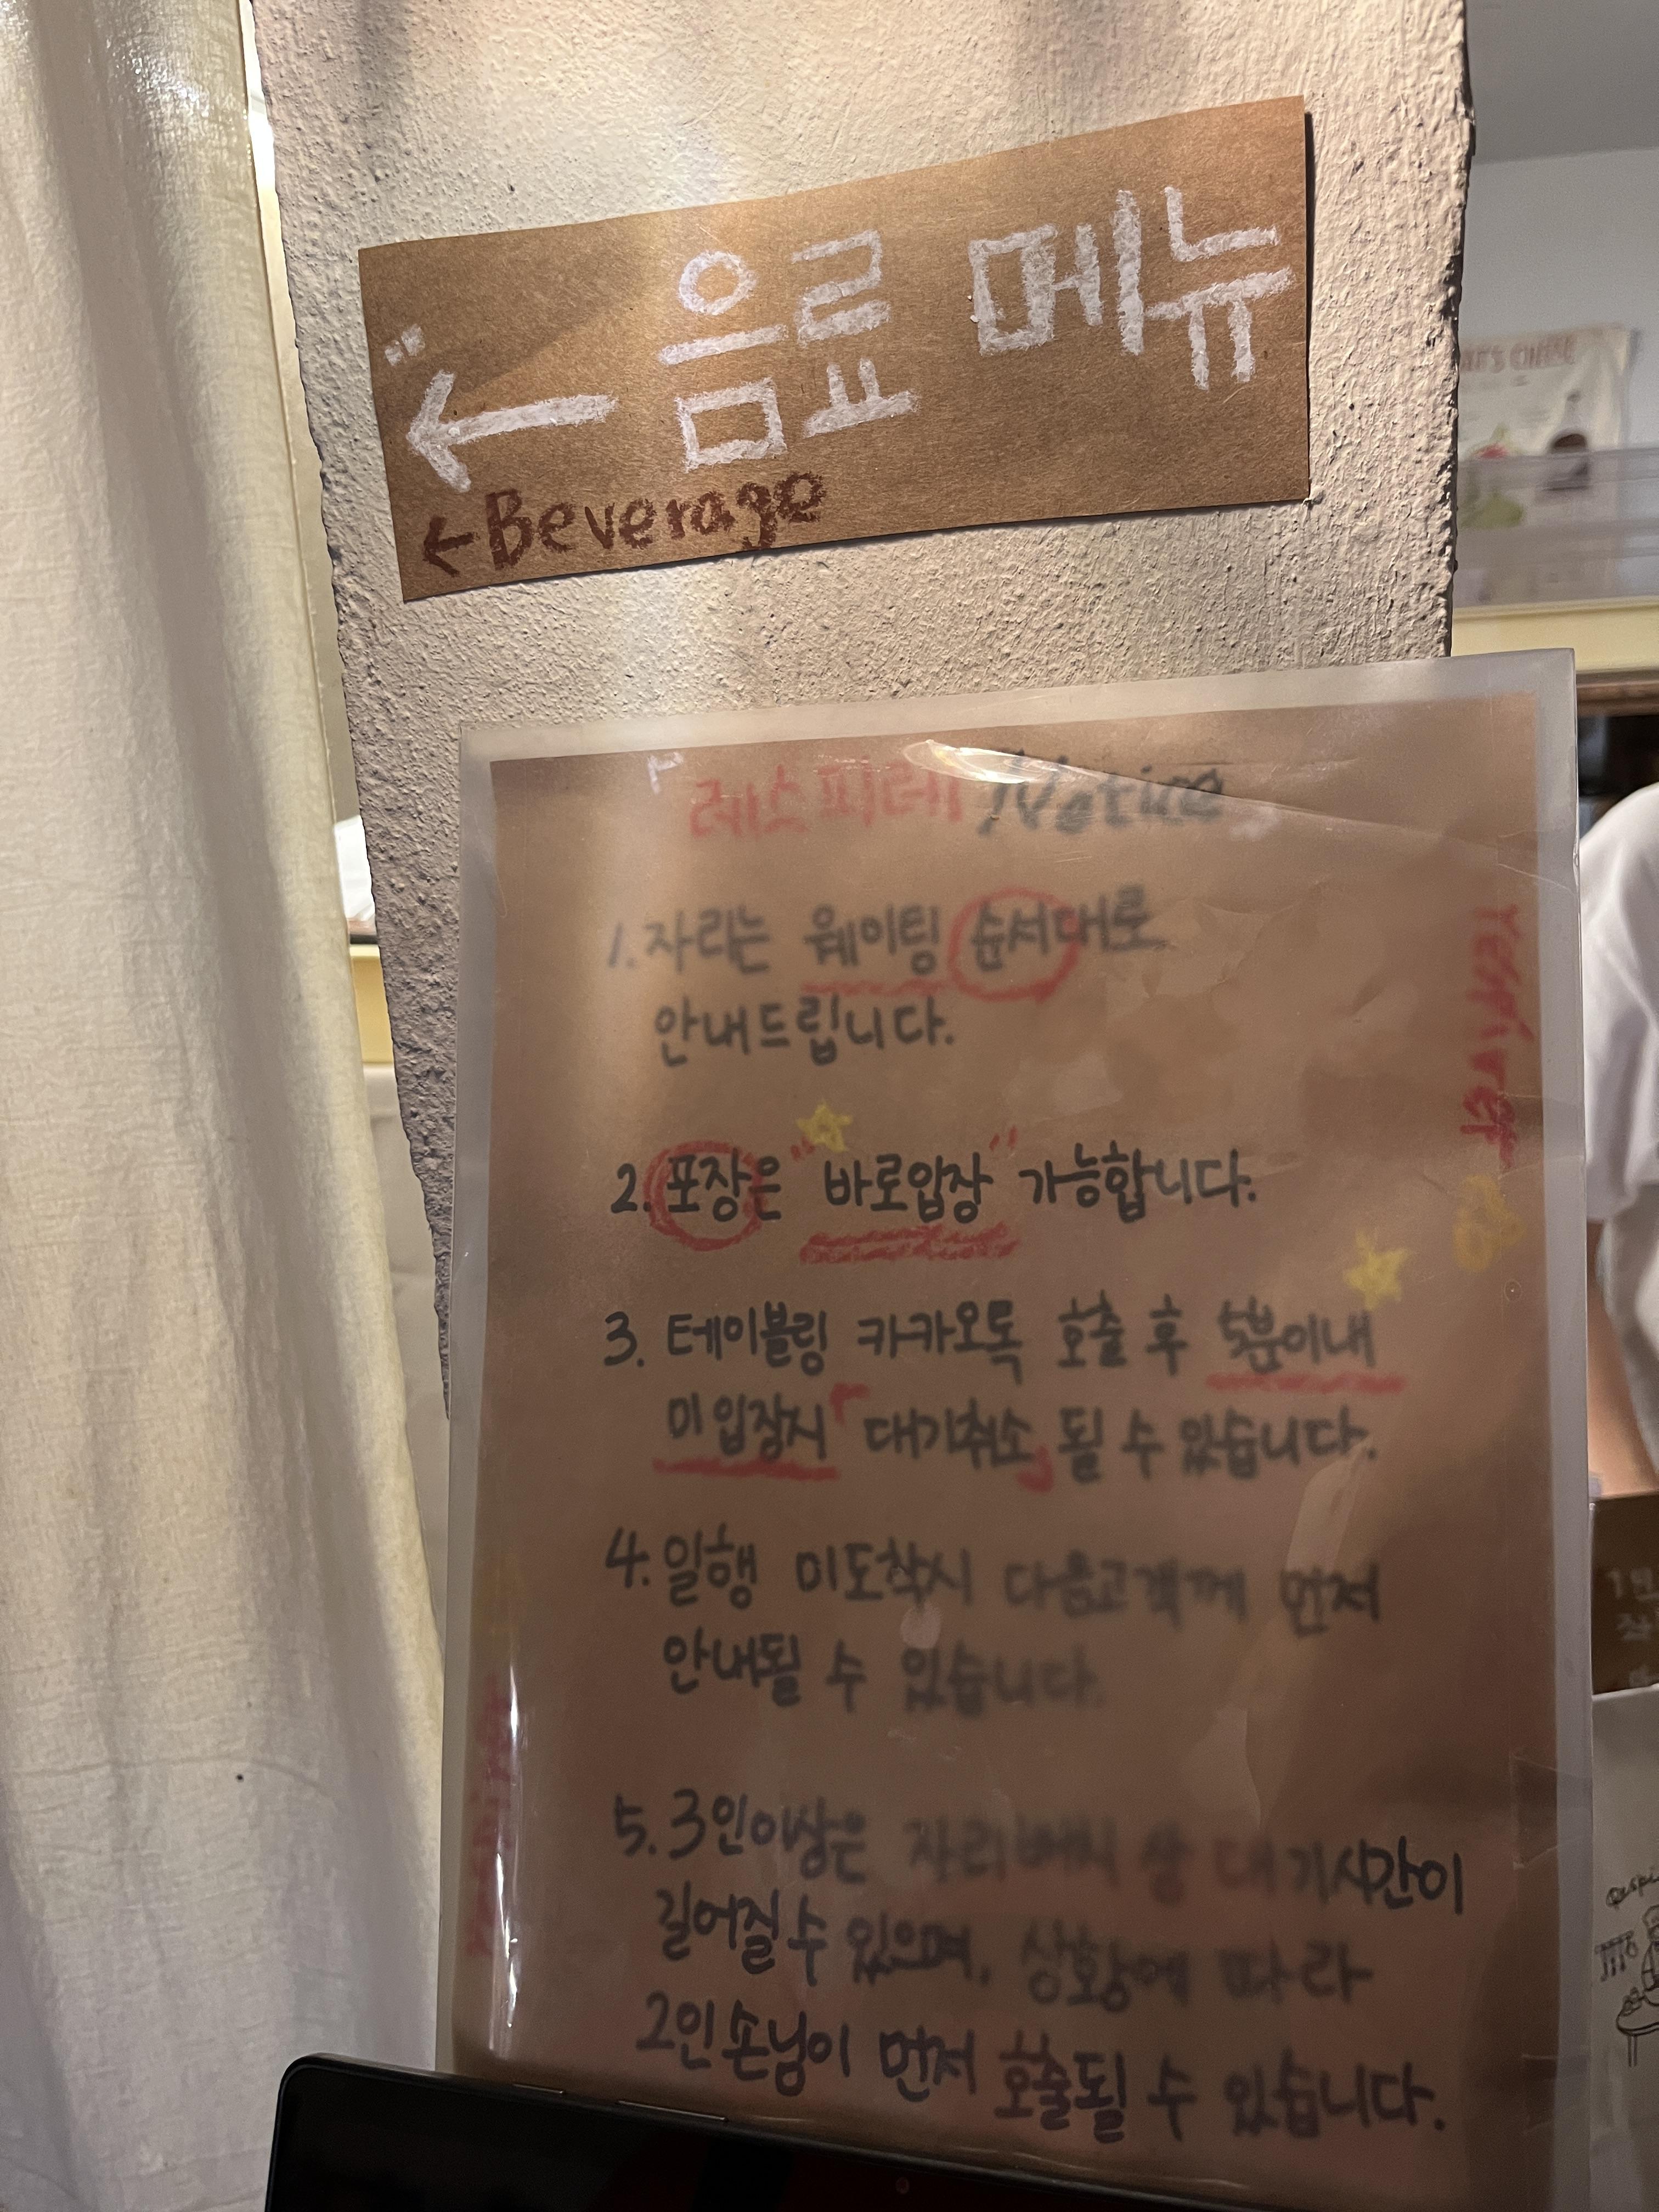 음료 메뉴
← Beverage
레스피레 Notice
1. 자리는 웨이팅 순서대로
안내드립니다.
2. 포장은 "바로입장" 가능합니다.
3. 테이블링 카카오톡 호출 후 5분이내
미입장시 「대기취소」 될 수 있습니다.
4. 일행 미도착시 다음고객께 먼저
안내될 수 있습니다.
5. 3인이상은 자리배치 상 대기시간이
길어질 수 있으며, 상황에 따라
2인손님이 먼저 호출될 수 있습니다.